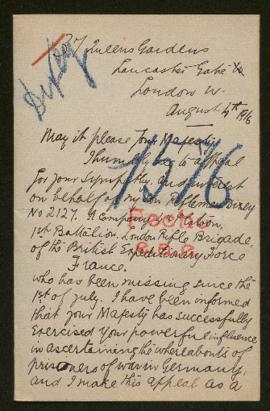 Queens Gardens
Lancaster Gate
London W.
August 4th 1916
May it please Your Majesty
I humbly beg to appeal
for your Sympathy and interest
on behalf of my son Rifleman
No 2127. A Company
1st Battalion London Rifle Brigade,
of the British Expeditionary Force
France.
who has been missing since the
1st of July. I have been informed
that your Majesty has successfully
Exercised Your powerful influence
in ascertaining the whereabouts of
prisoners of war in Germany,
and I make this appeal as a